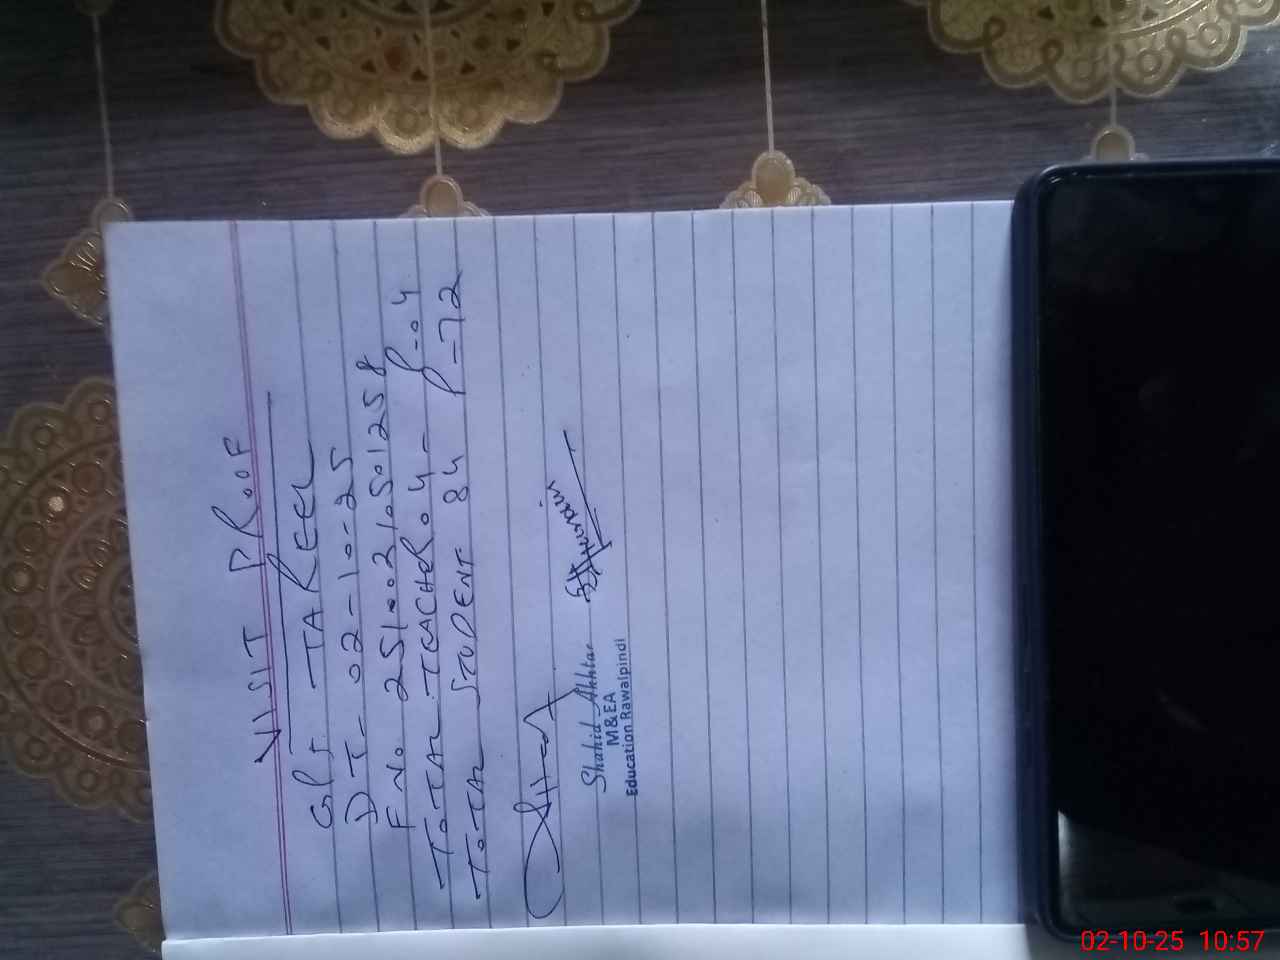 VISIT PROOF
GPS TAREEL
DT- 02-10-25
F No. 25100210501258
TOTAL TEACHER 04- P-04
TOTAL STUDENT 84 P-72
Shahid Akhtar
M&EA
Education Rawalpindi
02-10-25 10:57